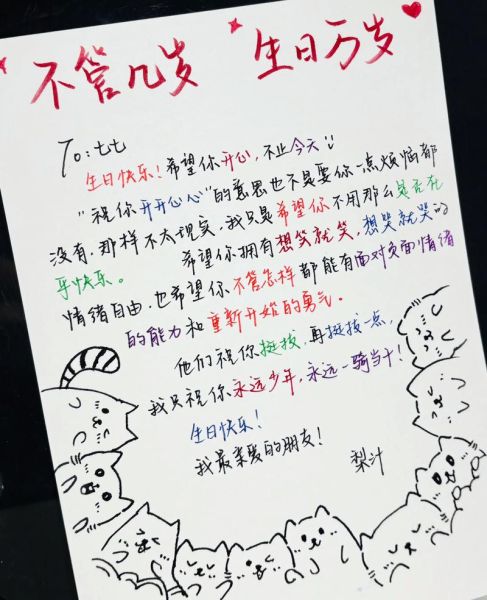 不管几岁 生日万岁
To:七七
生日快乐!希望你开心,不止今天
“祝你开开心心”的意思也不是要你一点烦恼都
没有,那样不太现实,我只是希望你不用那么是否在
乎快乐。 希望你拥有想笑就笑,想哭就哭的
情绪自由,也希望你不管怎样都能有面对负面情绪
的能力和重新开始的勇气。
他们祝你挺拔,再挺拔一点,
我只祝你永远少年,永远一骑当千!
生日快乐!
我最亲爱的朋友!
梨汁